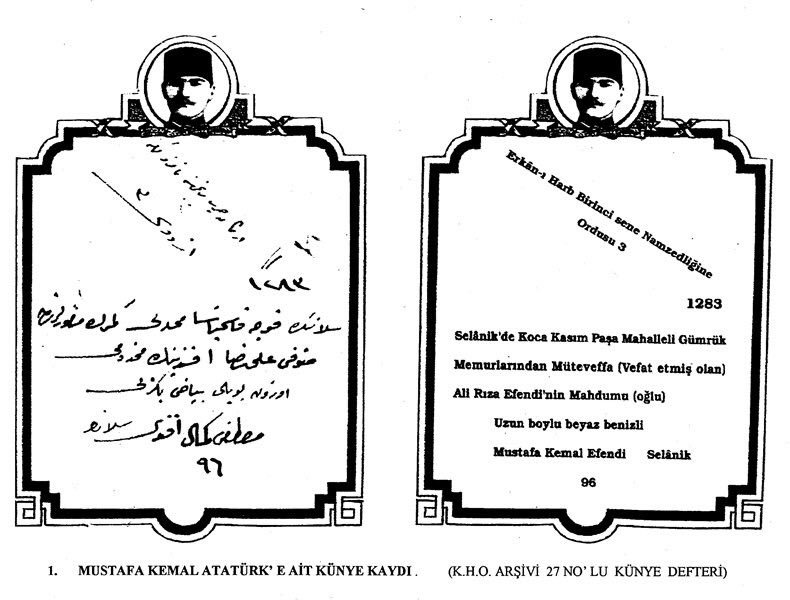 ارکان حربیه برنجی سنه نامزدلكنه
اردوسی ٣
١٢٨٣
سلانیكده قوجه قاسم پاشا محله‌لی كمرك مأمورلرندن
متوفی علی رضا افندینك مخدومی
اوزون بویلی بیاض بكزلی
مصطفی كمال افندی سلانیك
٩٦
Erkân-ı Harb Birinci sene Namzedliğine
Ordusu 3
1283
Selânik'de Koca Kasım Paşa Mahalleli Gümrük
Memurlarından Müteveffa (Vefat etmiş olan)
Ali Rıza Efendi'nin Mahdumu (oğlu)
Uzun boylu beyaz benizli
Mustafa Kemal Efendi Selânik
96
1. MUSTAFA KEMAL ATATÜRK' E AİT KÜNYE KAYDI . (K.H.O. ARŞİVİ 27 NO' LU KÜNYE DEFTERİ)